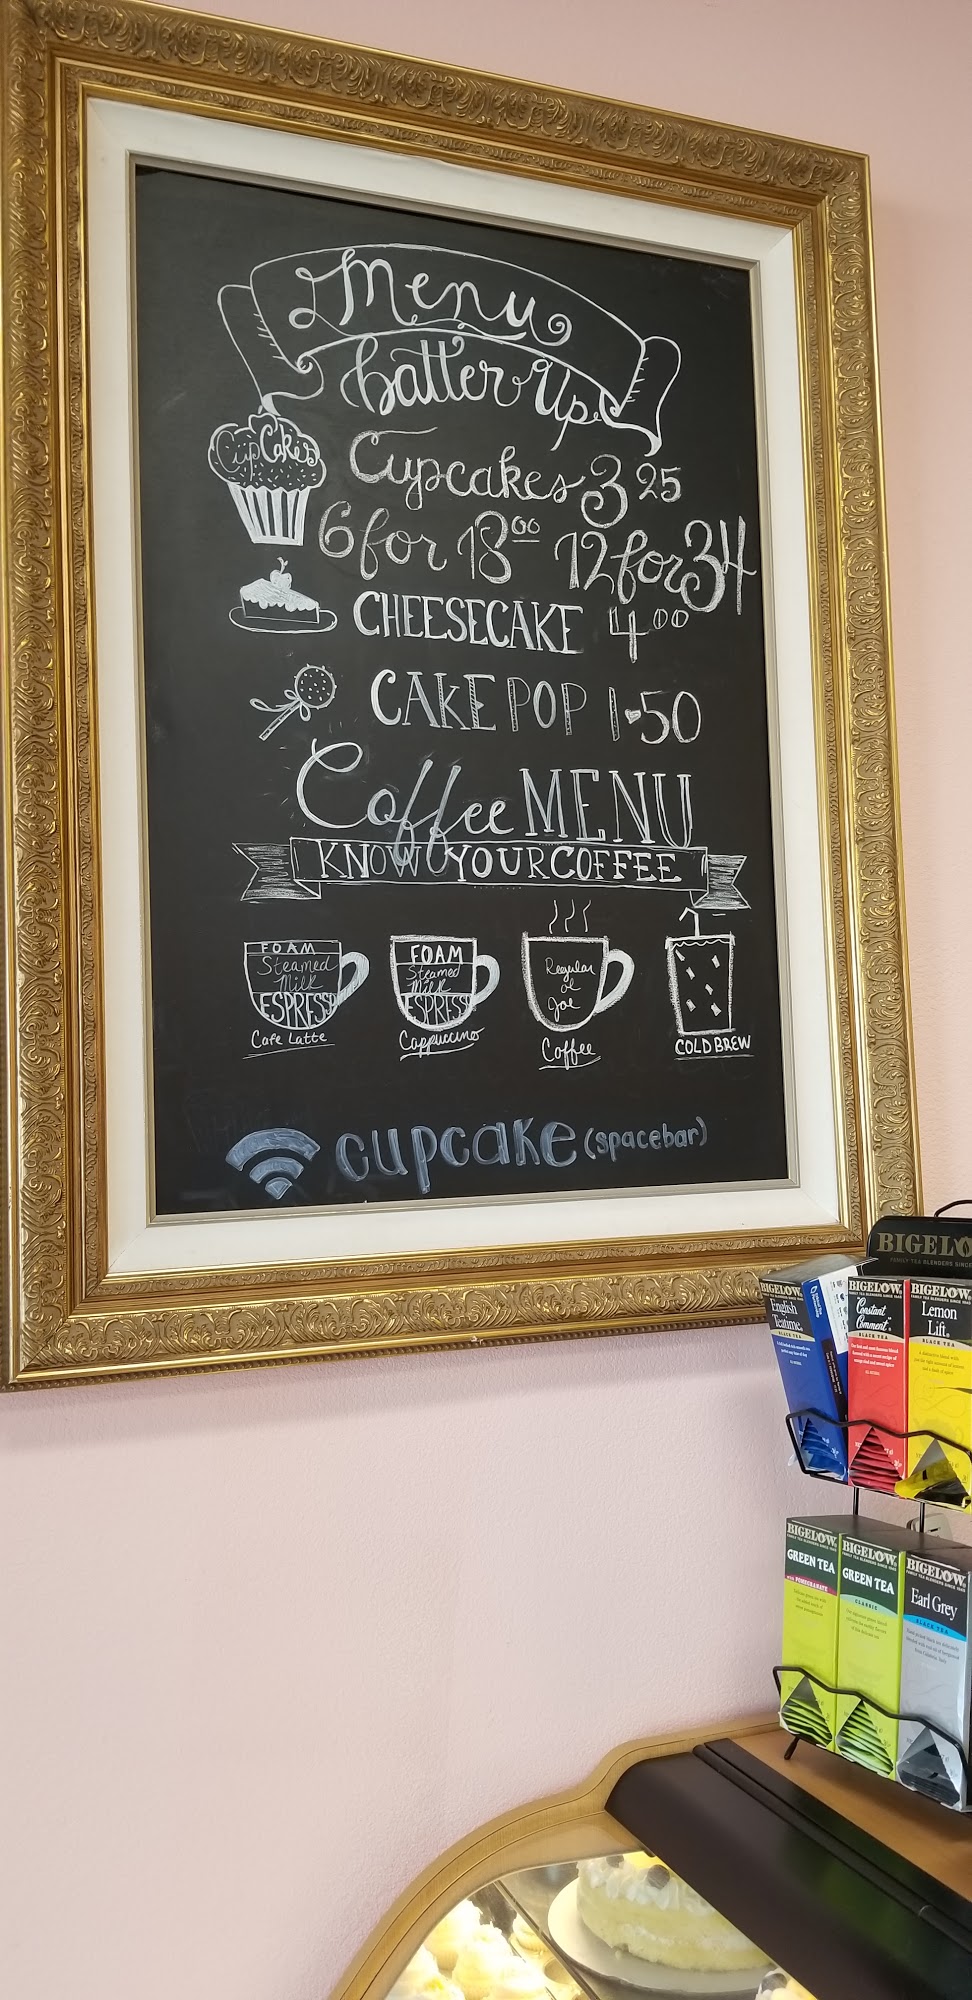 Menu
Batter Up
CupCakes
Cupcakes 3 25
6 for 18 00 12 for 34
CHEESECAKE 4 00
CAKE POP 1.50
Coffee MENU
KNOW YOUR COFFEE
FOAM
Steamed
Milk
ESPRESSO
Cafe Latte
FOAM
Steamed
Milk
ESPRESSO
Cappuccino
Regular
ol
Joe
Coffee
COLD BREW
cupcake (spacebar)
BIGELO
FAMILY TEA BLENDERS SINCE
BIGELOW
English
Teatime
BLACK TEA
BIGELOW
"Constant
Comment"
BLACK TEA
BIGELOW
Lemon
Lift
BLACK TEA
BIGELOW
GREEN TEA
WITH POMEGRANATE
BIGELOW
GREEN TEA
CLASSIC
BIGELOW
Earl Grey
BLACK TEA